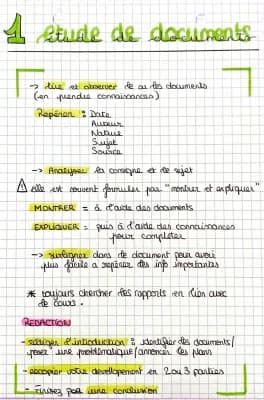 1 étude de documents
-> lire et observer le ou les documents
(en prendre connaissances)
Repérer : Date
Auteur
Nature
Sujet
Source
-> Analyser la consigne et le sujet
⚠ elle est souvent formuler par "montrer et expliquer"
MONTRER = à d'aide des documents
EXPLIQUER = puis à d'aide des connaissances
pour compléter
-> surligner dans de document pour avoir
plus facile a repérer des info importantes
* toujours chercher des rapports en lien avec
de cours.
REDACTION
- rédiger l'introduction : identifier des documents/
poser une problématique/annoncer les plans
- recopier votre developpement en 2 ou 3 parties
- Finirez par une conclusion